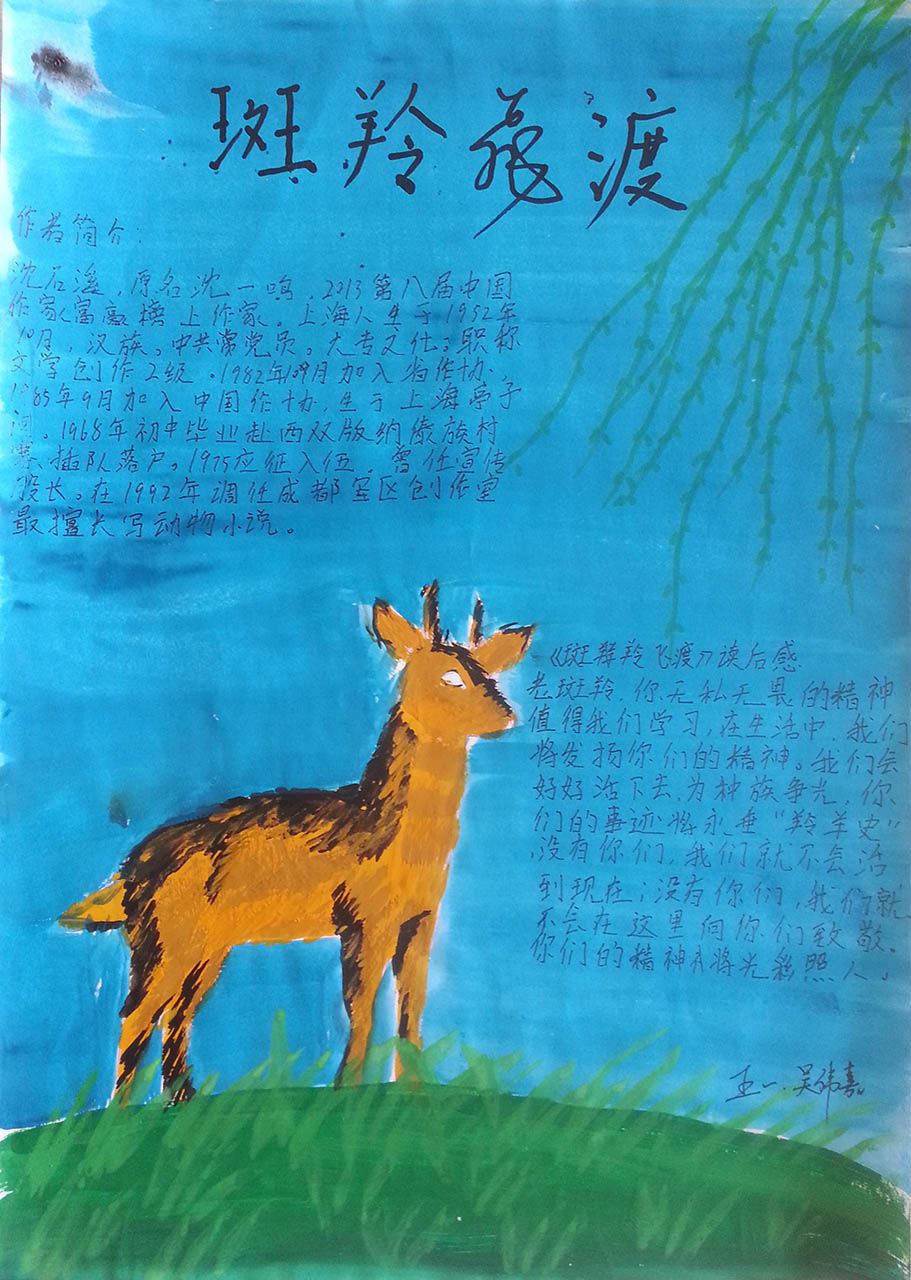 斑羚飛渡
作者简介:
沈石溪,原名沈一鸣,2013第八届中国
作家富豪榜上作家。上海人生于1952年
10月,汉族。中共党员。大专文化。职称
文学创作2级。1982年9月加入作协,
1985年9月加入中国作协,生于上海亭子
间。1968年初中毕业赴西双版纳傣族村
寨插队落户。1975应征入伍,曾任宣传
股长。在1992年调任成都军区创作室
最擅长写动物小说。
《斑羚飞渡》读后感
老斑羚,你无私无畏的精神
值得我们学习,在生活中,我们
将发扬你们的精神。我们会
好好活下去,为种族争光,你
们的事迹将永垂“羚羊史”
没有你们,我们就不会活
到现在;没有你们,我们就
不会在这里向你们致敬。
你们的精神将光彩照人。
五一.吴伟嘉